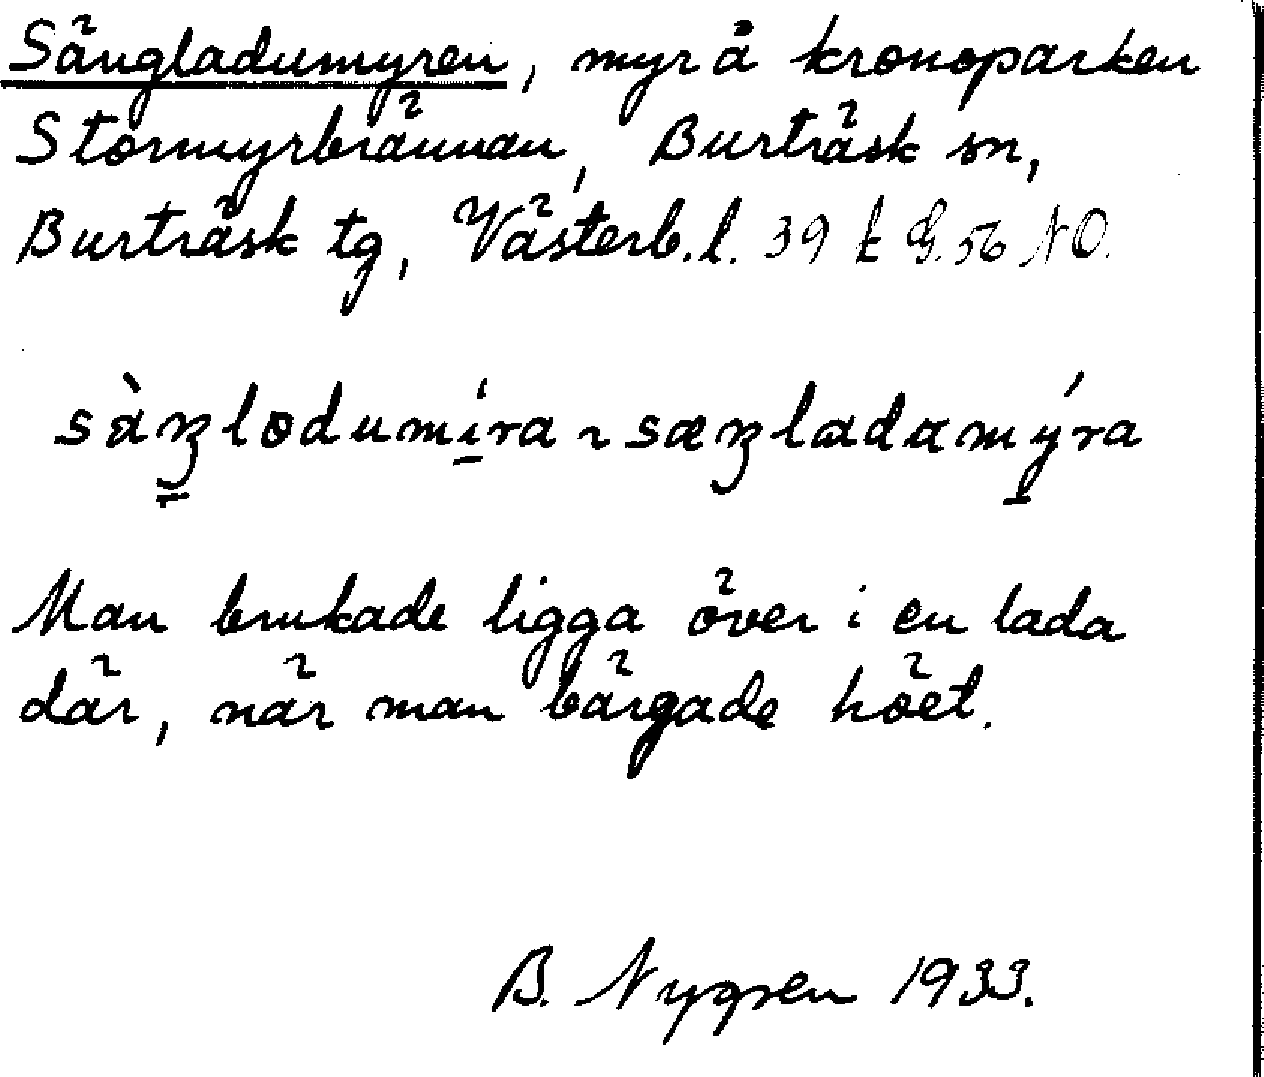 Sängladumyren, myr å kronoparken
Stormyrbrännan, Burträsk sn,
Burträsk tg, Västerb. l. 39 k G. 56 NO.
sàŋlodumíra ~ sæŋladamýra
Man brukade ligga över i en lada
där, när man bärgade höet.
B. Nygren 1933.